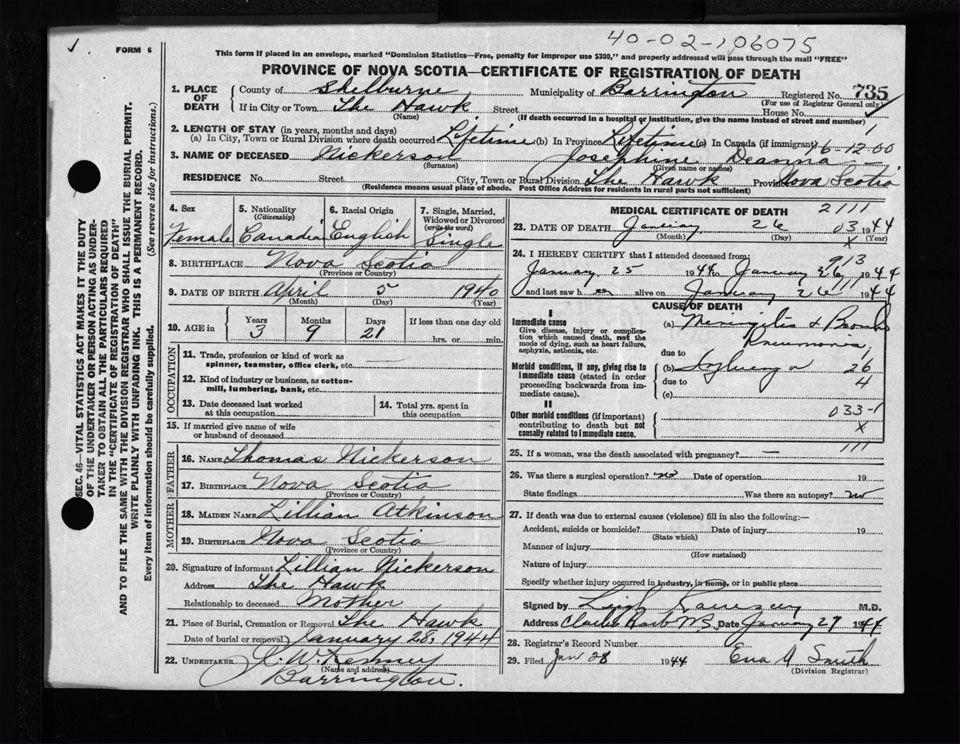 40-02-106075
FORM 6
This form if placed in an envelope, marked "Dominion Statistics—Free, penalty for improper use $300," and properly addressed will pass through the mail "FREE"
PROVINCE OF NOVA SCOTIA—CERTIFICATE OF REGISTRATION OF DEATH
1. PLACE OF DEATH
County of Shelburne Municipality of Barrington Registered No. 735
(For use of Registrar General only)
If in City or Town The Hawk Street House No.
(Name) (If death occurred in a hospital or institution, give the name instead of street and number)
2. LENGTH OF STAY (in years, months and days)
(a) In City, Town or Rural Division where death occurred Lifetime (b) In Province Lifetime (c) In Canada (if immigrant) 16-12-00
3. NAME OF DECEASED Nickerson Josephine Deanna
(Surname) (Given name or names)
RESIDENCE No. Street City, Town or Rural Division The Hawk Province Nova Scotia
(Residence means usual place of abode. Post Office Address for residents in rural parts not sufficient)
4. Sex
Female
5. Nationality
(Citizenship)
Canadian
6. Racial Origin
English
7. Single, Married, Widowed or Divorced
(write the word)
Single
8. BIRTHPLACE Nova Scotia
(Province or Country)
9. DATE OF BIRTH April 5 1940
(Month) (Day) (Year)
10. AGE in
Years Months Days If less than one day old
3 9 21 hrs. or min.
OCCUPATION
11. Trade, profession or kind of work as
spinner, teamster, office clerk, etc.
12. Kind of industry or business, as cotton-
mill, lumbering, bank, etc.
13. Date deceased last worked
at this occupation
14. Total yrs. spent in
this occupation
15. If married give name of wife
or husband of deceased
FATHER
16. NAME Thomas Nickerson
17. BIRTHPLACE Nova Scotia
(Province or Country)
MOTHER
18. MAIDEN NAME Lillian Atkinson
19. BIRTHPLACE Nova Scotia
(Province or Country)
20. Signature of informant Lillian Nickerson
Address The Hawk
Relationship to deceased Mother
21. Place of Burial, Cremation or Removal The Hawk
Date of burial or removal January 28, 1944
22. UNDERTAKER W. Kenney
(Name and address)
Barrington.
MEDICAL CERTIFICATE OF DEATH
2111
23. DATE OF DEATH January 26 03 1944
(Month) (Day) X (Year)
24. I HEREBY CERTIFY that I attended deceased from 913
January 25 1944 to January 26, 1944
111
and last saw her alive on January 26 1944
CAUSE OF DEATH
I
Immediate cause
Give disease, injury or complication which caused death, not the mode of dying, such as heart failure, asphyxia, asthenia, etc.
(a) Meningitis & Broncho
Pneumonia
due to 1
Morbid conditions, if any, giving rise to immediate cause (stated in order proceeding backwards from immediate cause).
(b) 26
due to 4
(c)
II
Other morbid conditions (if important) contributing to death but not causally related to immediate cause.
033-1
X
111
25. If a woman, was the death associated with pregnancy? —
26. Was there a surgical operation? no Date of operation 19
State findings Was there an autopsy? no
27. If death was due to external causes (violence) fill in also the following:—
Accident, suicide or homicide? Date of injury 19
(State which)
Manner of injury
(How sustained)
Nature of injury
Specify whether injury occurred in industry, in home, or in public place
Signed by M.D.
Address Date January 27 1944
28. Registrar's Record Number
29. Filed Jan 28 1944 Smith
(Division Registrar)
SEC. 46—VITAL STATISTICS ACT MAKES IT THE DUTY
OF THE UNDERTAKER OR PERSON ACTING AS UNDER-
TAKER TO OBTAIN ALL THE PARTICULARS REQUIRED
IN THE "CERTIFICATE OF REGISTRATION OF DEATH"
AND TO FILE THE SAME WITH THE DIVISION REGISTRAR WHO SHALL ISSUE THE BURIAL PERMIT.
WRITE PLAINLY WITH UNFADING INK. THIS IS A PERMANENT RECORD.
Every item of information should be carefully supplied. (See reverse side for instructions.)